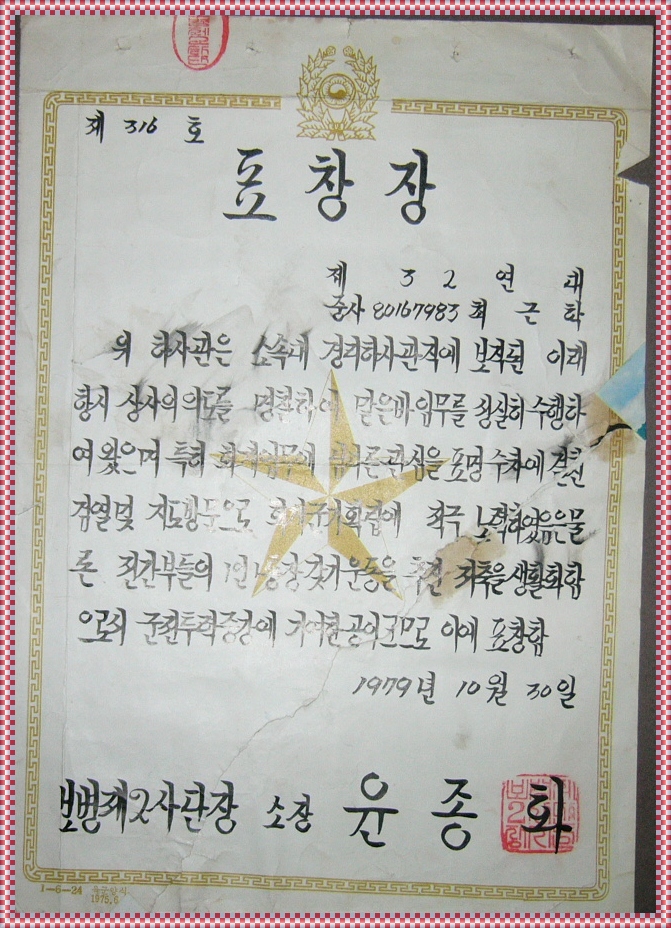 제 316 호
표 창 장
제 3 2 연 대
준사 80167983 최 근 학
위 하사관은 소속대 경리하사관직에 보직된 이래
항시 상사의 의도를 명찰하여 맡은바 임무를 성실히 수행하
여 왔으며 특히 회계임무에 관심을 표명 수차에 걸친
검열및 지도방문으로 적극 노력하였음은물
론 전간부들의 1인 1통장 갖기 운동을 추진 저축을 생활화함
으로서 군전투력증강에 기여한 공이 크므로 이에 표창함
1979년 10월 30일
보병제2사단장 소장 윤 종 화
1-6-24 육군양식
1975.6